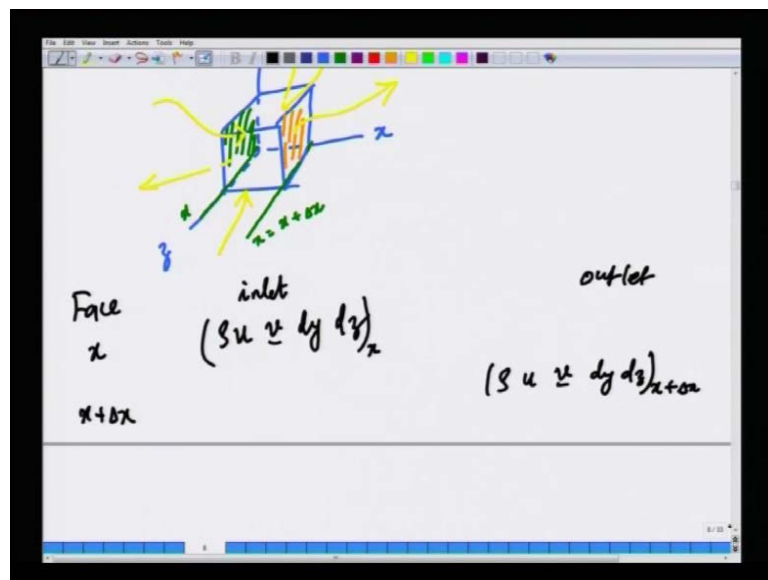 File Edit View Insert Actions Tools Help
B I
x
x
x = x + Δx
z
Face inlet outlet
x (ρ u v dy dz)x
(ρ u v dy dz)x+Δx
x+Δx
8/33
8